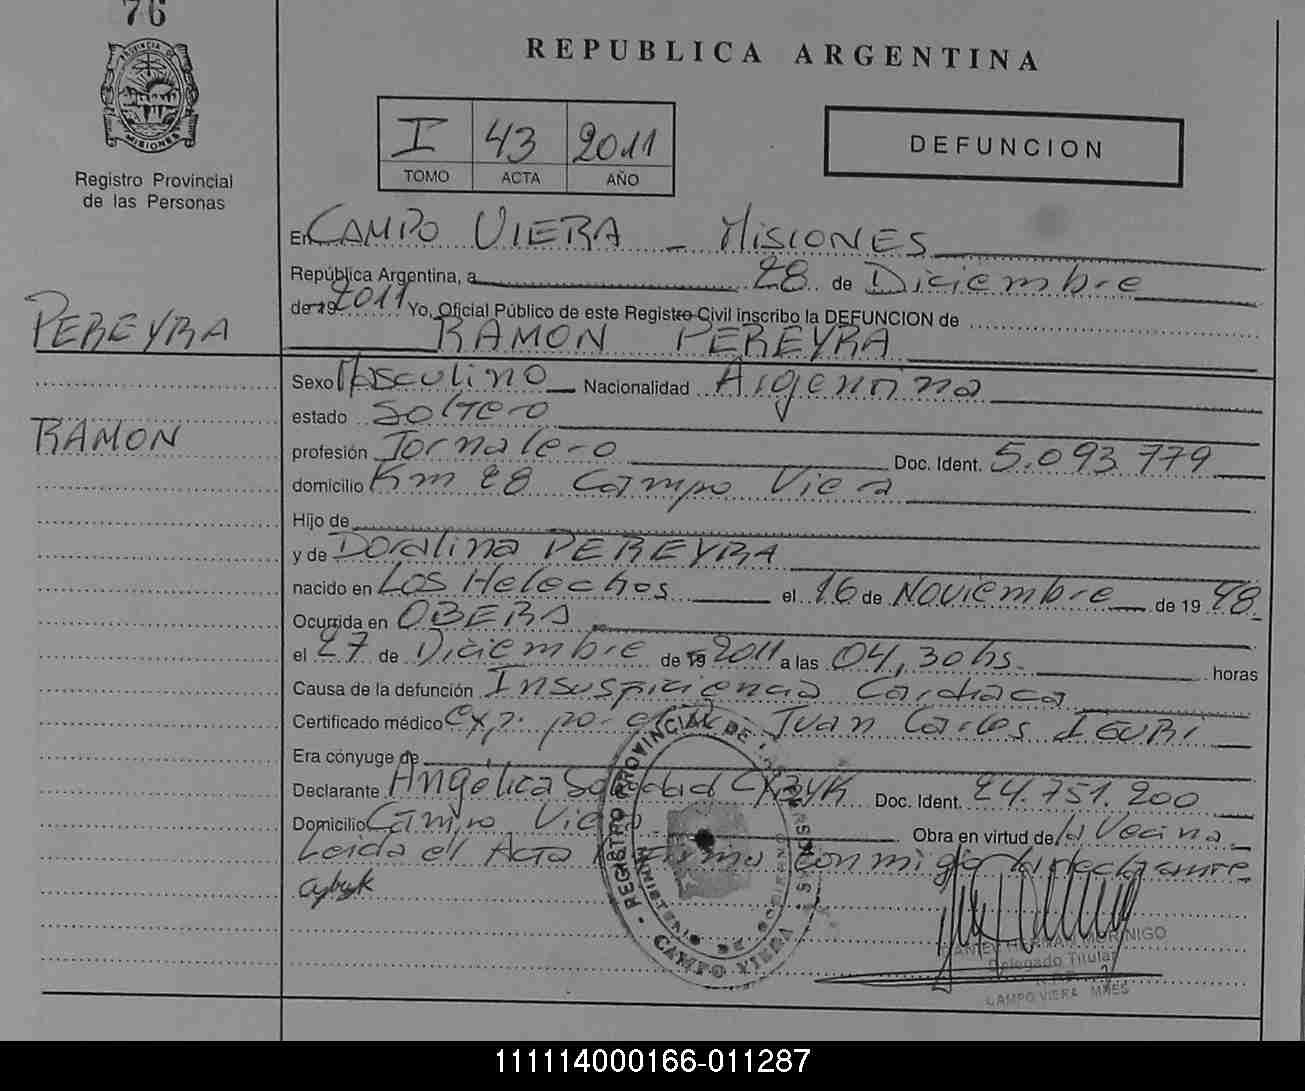 76
PROVINCIA DE
MISIONES
Registro Provincial
de las Personas
REPUBLICA ARGENTINA
I 43 2011
TOMO ACTA AÑO
DEFUNCION
En CAMPO VIERA - MISIONES
República Argentina, a 28 de Diciembre
de 19 2011 Yo, Oficial Público de este Registro Civil inscribo la DEFUNCION de
PEREYRA
RAMON PEREYRA
Sexo Masculino Nacionalidad Argentina
estado Soltero
RAMON
profesión Jornalero Doc. Ident. 5.093.779
domicilio Km 28 Campo Viera
Hijo de
y de Doralina PEREYRA
nacido en Los Helechos el 16 de Noviembre de 19 48
Ocurrida en OBERA
el 27 de Diciembre de 19 2011 a las 04,30 hs. horas
Causa de la defunción Insuspiciencia Cardiaca
Certificado médico Exp. por el Juan Carlos
Era cónyuge de
Declarante Angélica Soledad Doc. Ident. 24.751.200
Domicilio Campo Viera Obra en virtud de la Vecina
Leida el Acta la firma conmigo la declarante
REGISTRO PROVINCIAL DE LAS PERSONAS
MINISTERIO DE GOBIERNO
CAMPO VIERA
MORINIGO
Delegado Titular
CAMPO VIERA MNES
111114000166-011287